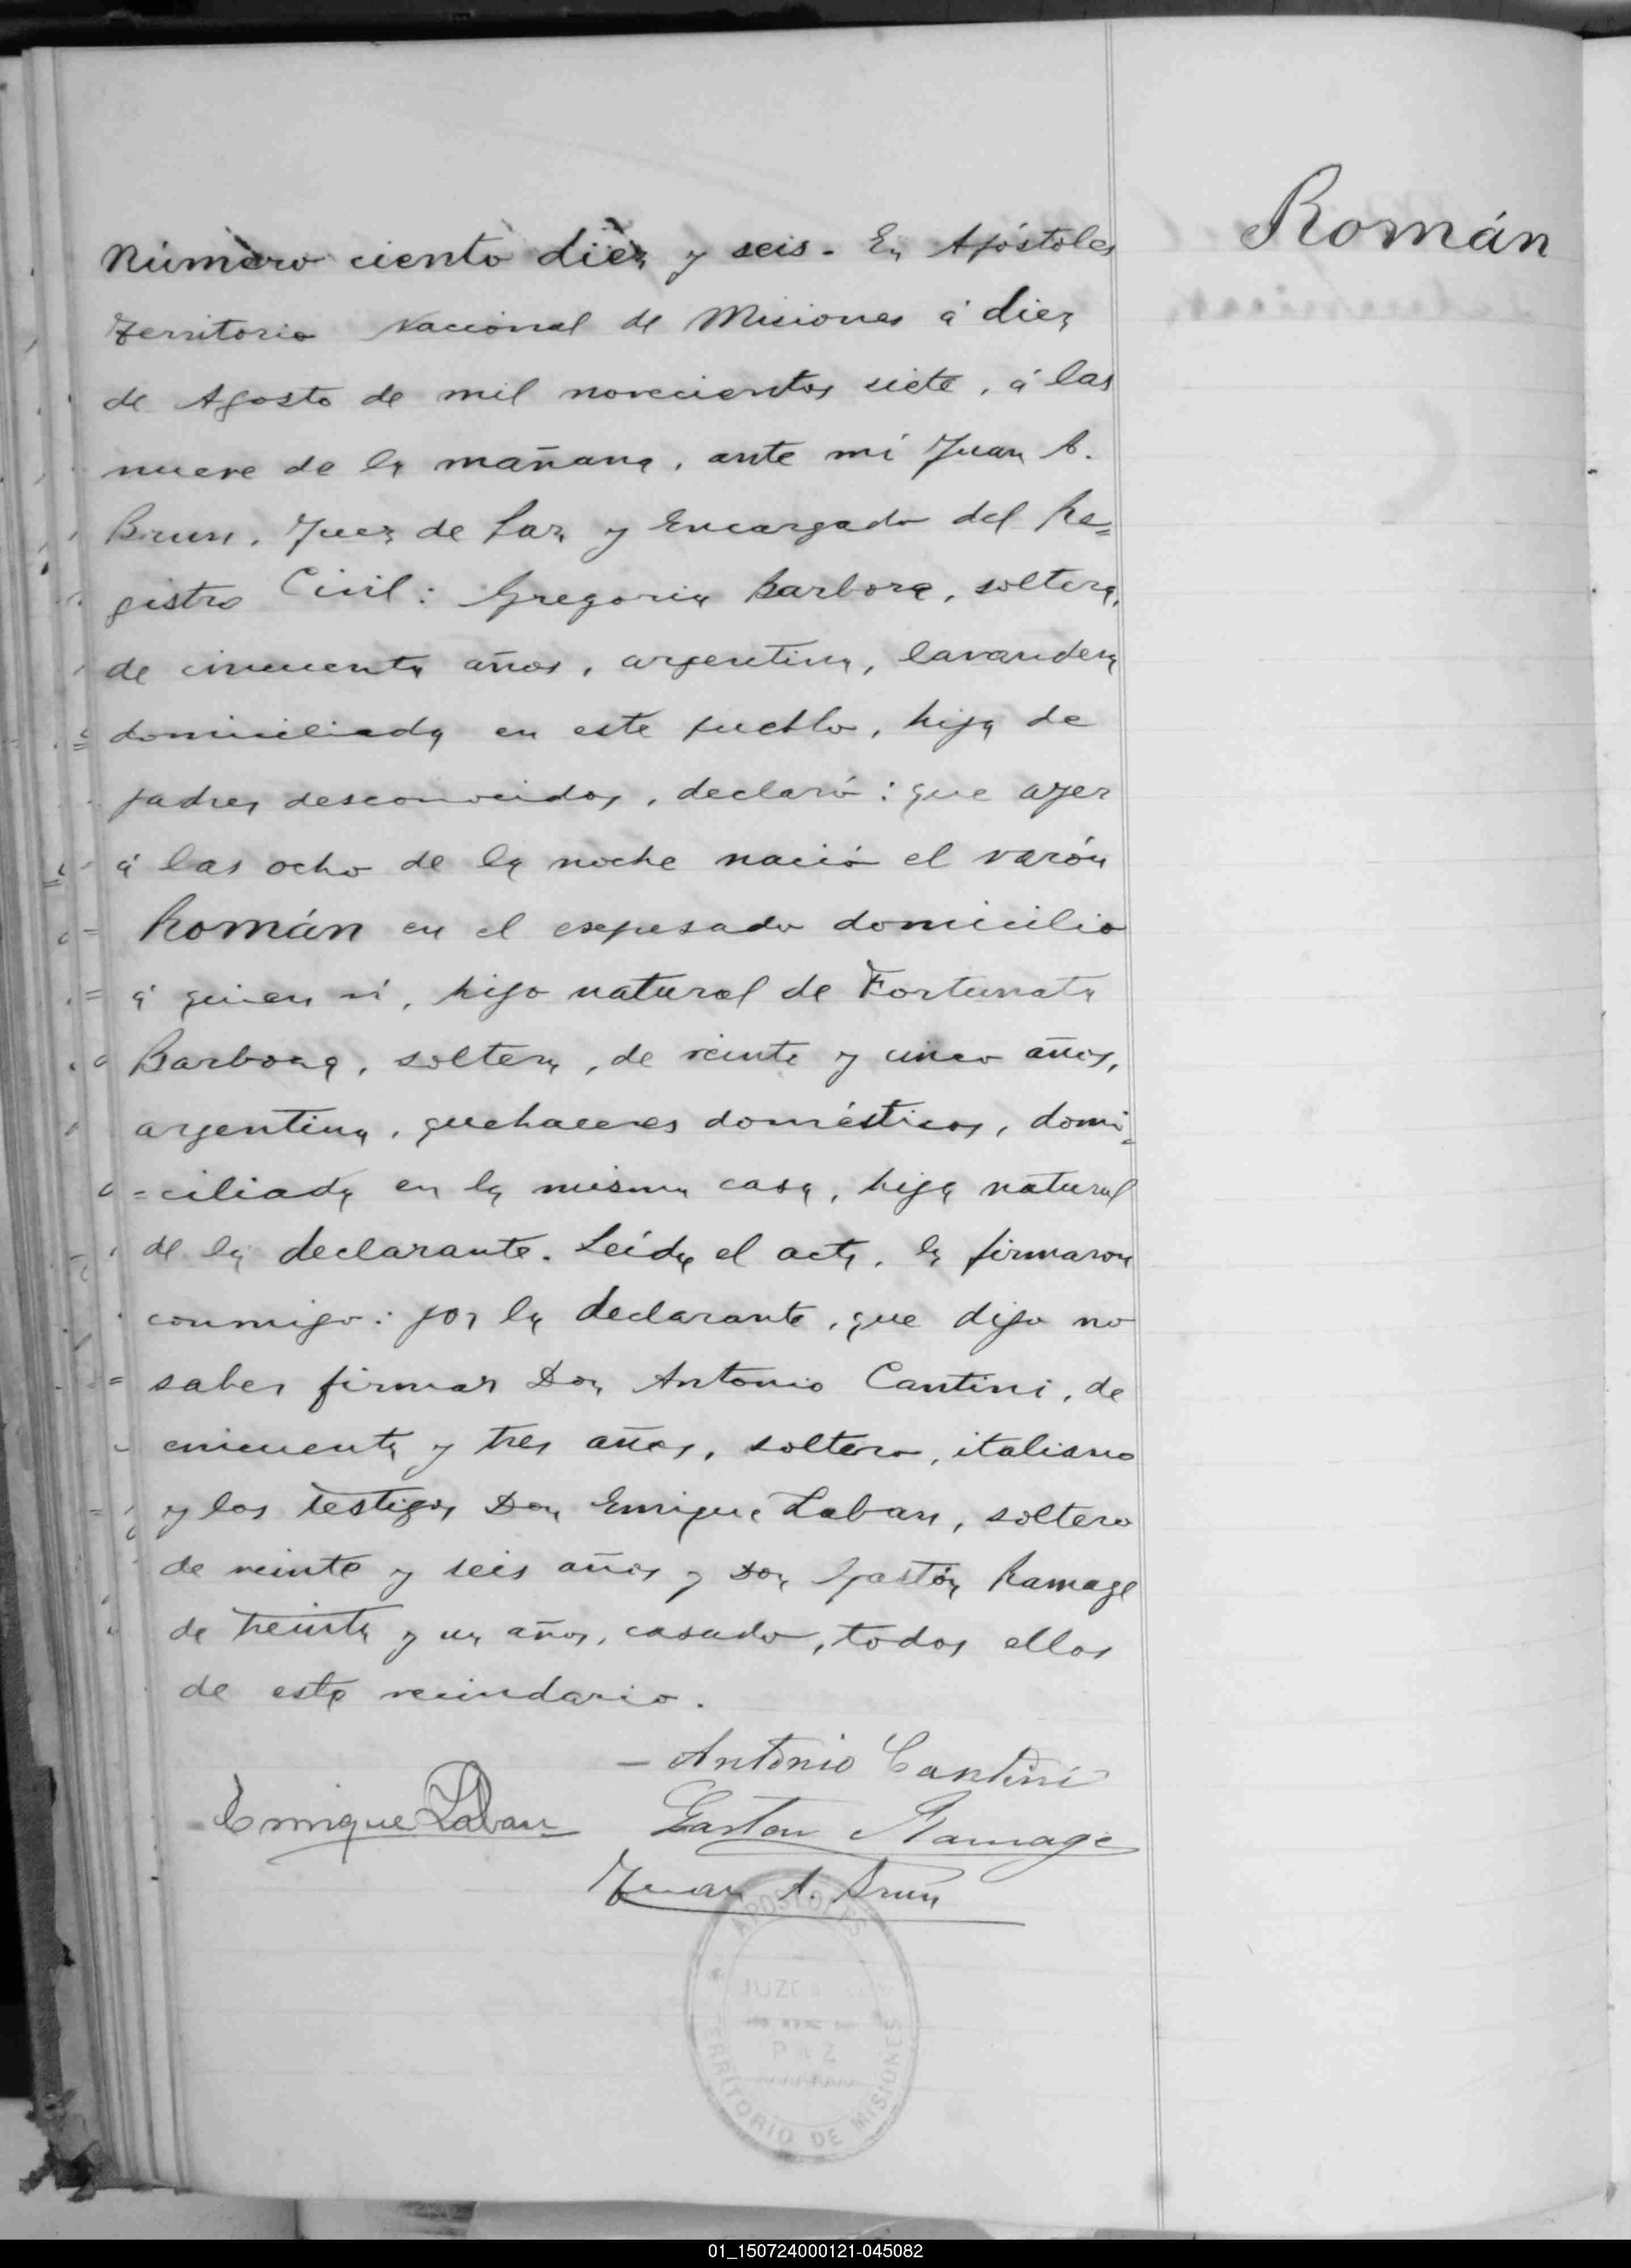 Román
Número ciento diez y seis. En Apóstoles
Territorio Nacional de Misiones á diez
de Agosto de mil novecientos siete, á las
nueve de la mañana, ante mí Juan A.
Brun, Juez de Paz y Encargado del Re=
gistro Civil: Gregoria Barboza, soltera,
de cincuenta años, argentina, lavandera
domiciliada en este pueblo, hija de
padres desconocidos, declaró: que ayer
á las ocho de la noche nació el varón
Román en el expresado domicilio
á quien ví, hijo natural de Fortunata
Barboza, soltera, de veinte y cinco años,
argentina, quehaceres domésticos, domi=
=ciliada en la misma casa, hija natural
de la declarante. Leída el acta, la firmaron
conmigo: por la declarante, que dijo no
saber firmar Don Antonio Cantini, de
cincuenta y tres años, soltero, italiano
y los testigos Don Enrique Laban, soltero
de veinte y seis años y Don Gastón Ramage
de treinta y un años, casado, todos ellos
de este vecindario.
- Antonio Cantini
Enrique Laban Gaston Ramage
Juan A. Brun
APOSTOLES
JUZG
PAZ
TERRITORIO DE MISIONES
01_150724000121-045082